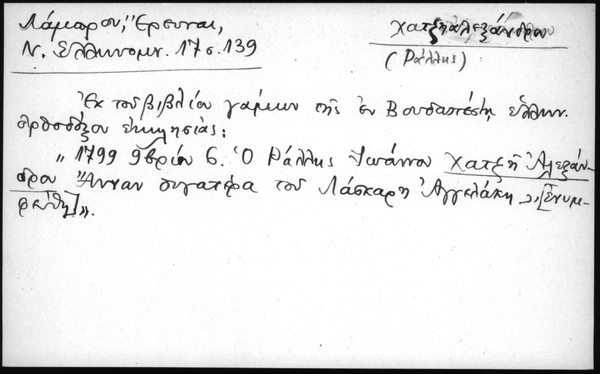 Λάμπρου, Ἔρευναι,
Ν. Ἑλληνομν. 17 σ. 139
Χατζηαλεξάνδρου
(Ράλλης)
Ἐκ τοῦ βιβλίου γάμων τῆς ἐν Βουδαπέστῃ ἑλλην.
ὀρθοδόξου ἐκκλησίας:
„ 1799 9βρίου 6. Ὁ Ράλλης Ἰωάννου Χατζῆ Ἀλεξάν-
δρου Ἄνναν θυγατέρα τοῦ Λάσκαρη Ἀγγελάκη ,,[ἐνυμ-
φεύθη]».